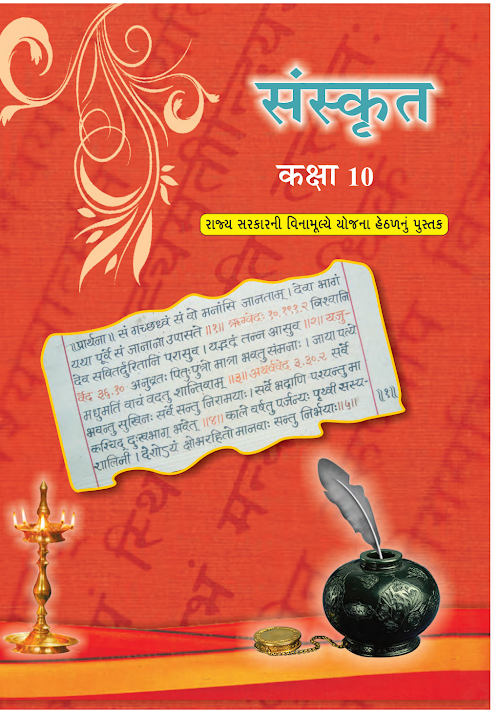 संस्कृत
कक्षा 10
રાજ્ય સરકારની વિનામૂલ્યે યોજના હેઠળનું પુસ્તક
॥प्रार्थना॥ सं गच्छध्वं सं वो मनांसि जानताम्। देवा भागं
यथा पूर्वे सं जानाना उपासते॥१॥ ऋग्वेदः १०.१९१.२ विश्वानि
देव सवितर्दुरितानि परासुव। यद्भद्रं तन्न आसुव॥२॥ यजु-
र्वेद ३६.१० अनुव्रतः पितुः पुत्रो मात्रा भवतु संमनाः। जाया पत्ये
मधुमतीं वाचं वदतु शान्तिवाम्॥३॥ अथर्ववेद ३.३०.२ सर्वे
भवन्तु सुखिनः सर्वे सन्तु निरामयाः। सर्वे भद्राणि पश्यन्तु मा
कश्चिद् दुःखभाग् भवेत्॥४॥ काले वर्षतु पर्जन्यः पृथ्वी सस्य-
शालिनी। देशोऽयं क्षोभरहितो मानवाः सन्तु निर्भयाः॥५॥
॥१॥